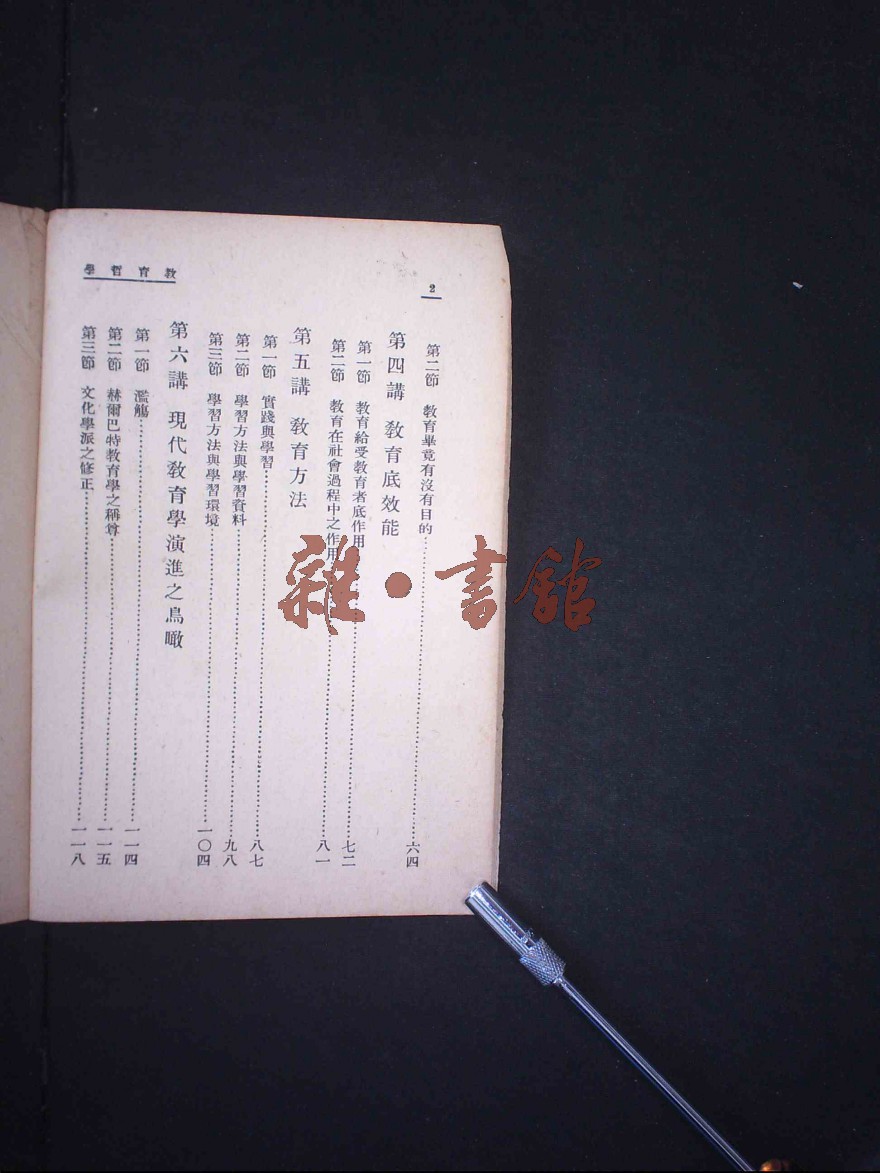 2
教育哲學
第二節 教育畢竟有沒有目的……六四
第四講 教育底效能
第一節 教育給受教育者底作用……七二
第二節 教育在社會過程中之作用……八一
第五講 教育方法
第一節 實踐與學習……八七
第二節 學習方法與學習資料……九八
第三節 學習方法與學習環境……一〇四
第六講 現代教育學演進之鳥瞰
第一節 濫觴……一一四
第二節 赫爾巴特教育學之稱尊……一一五
第三節 文化學派之修正……一一八
雜·書館